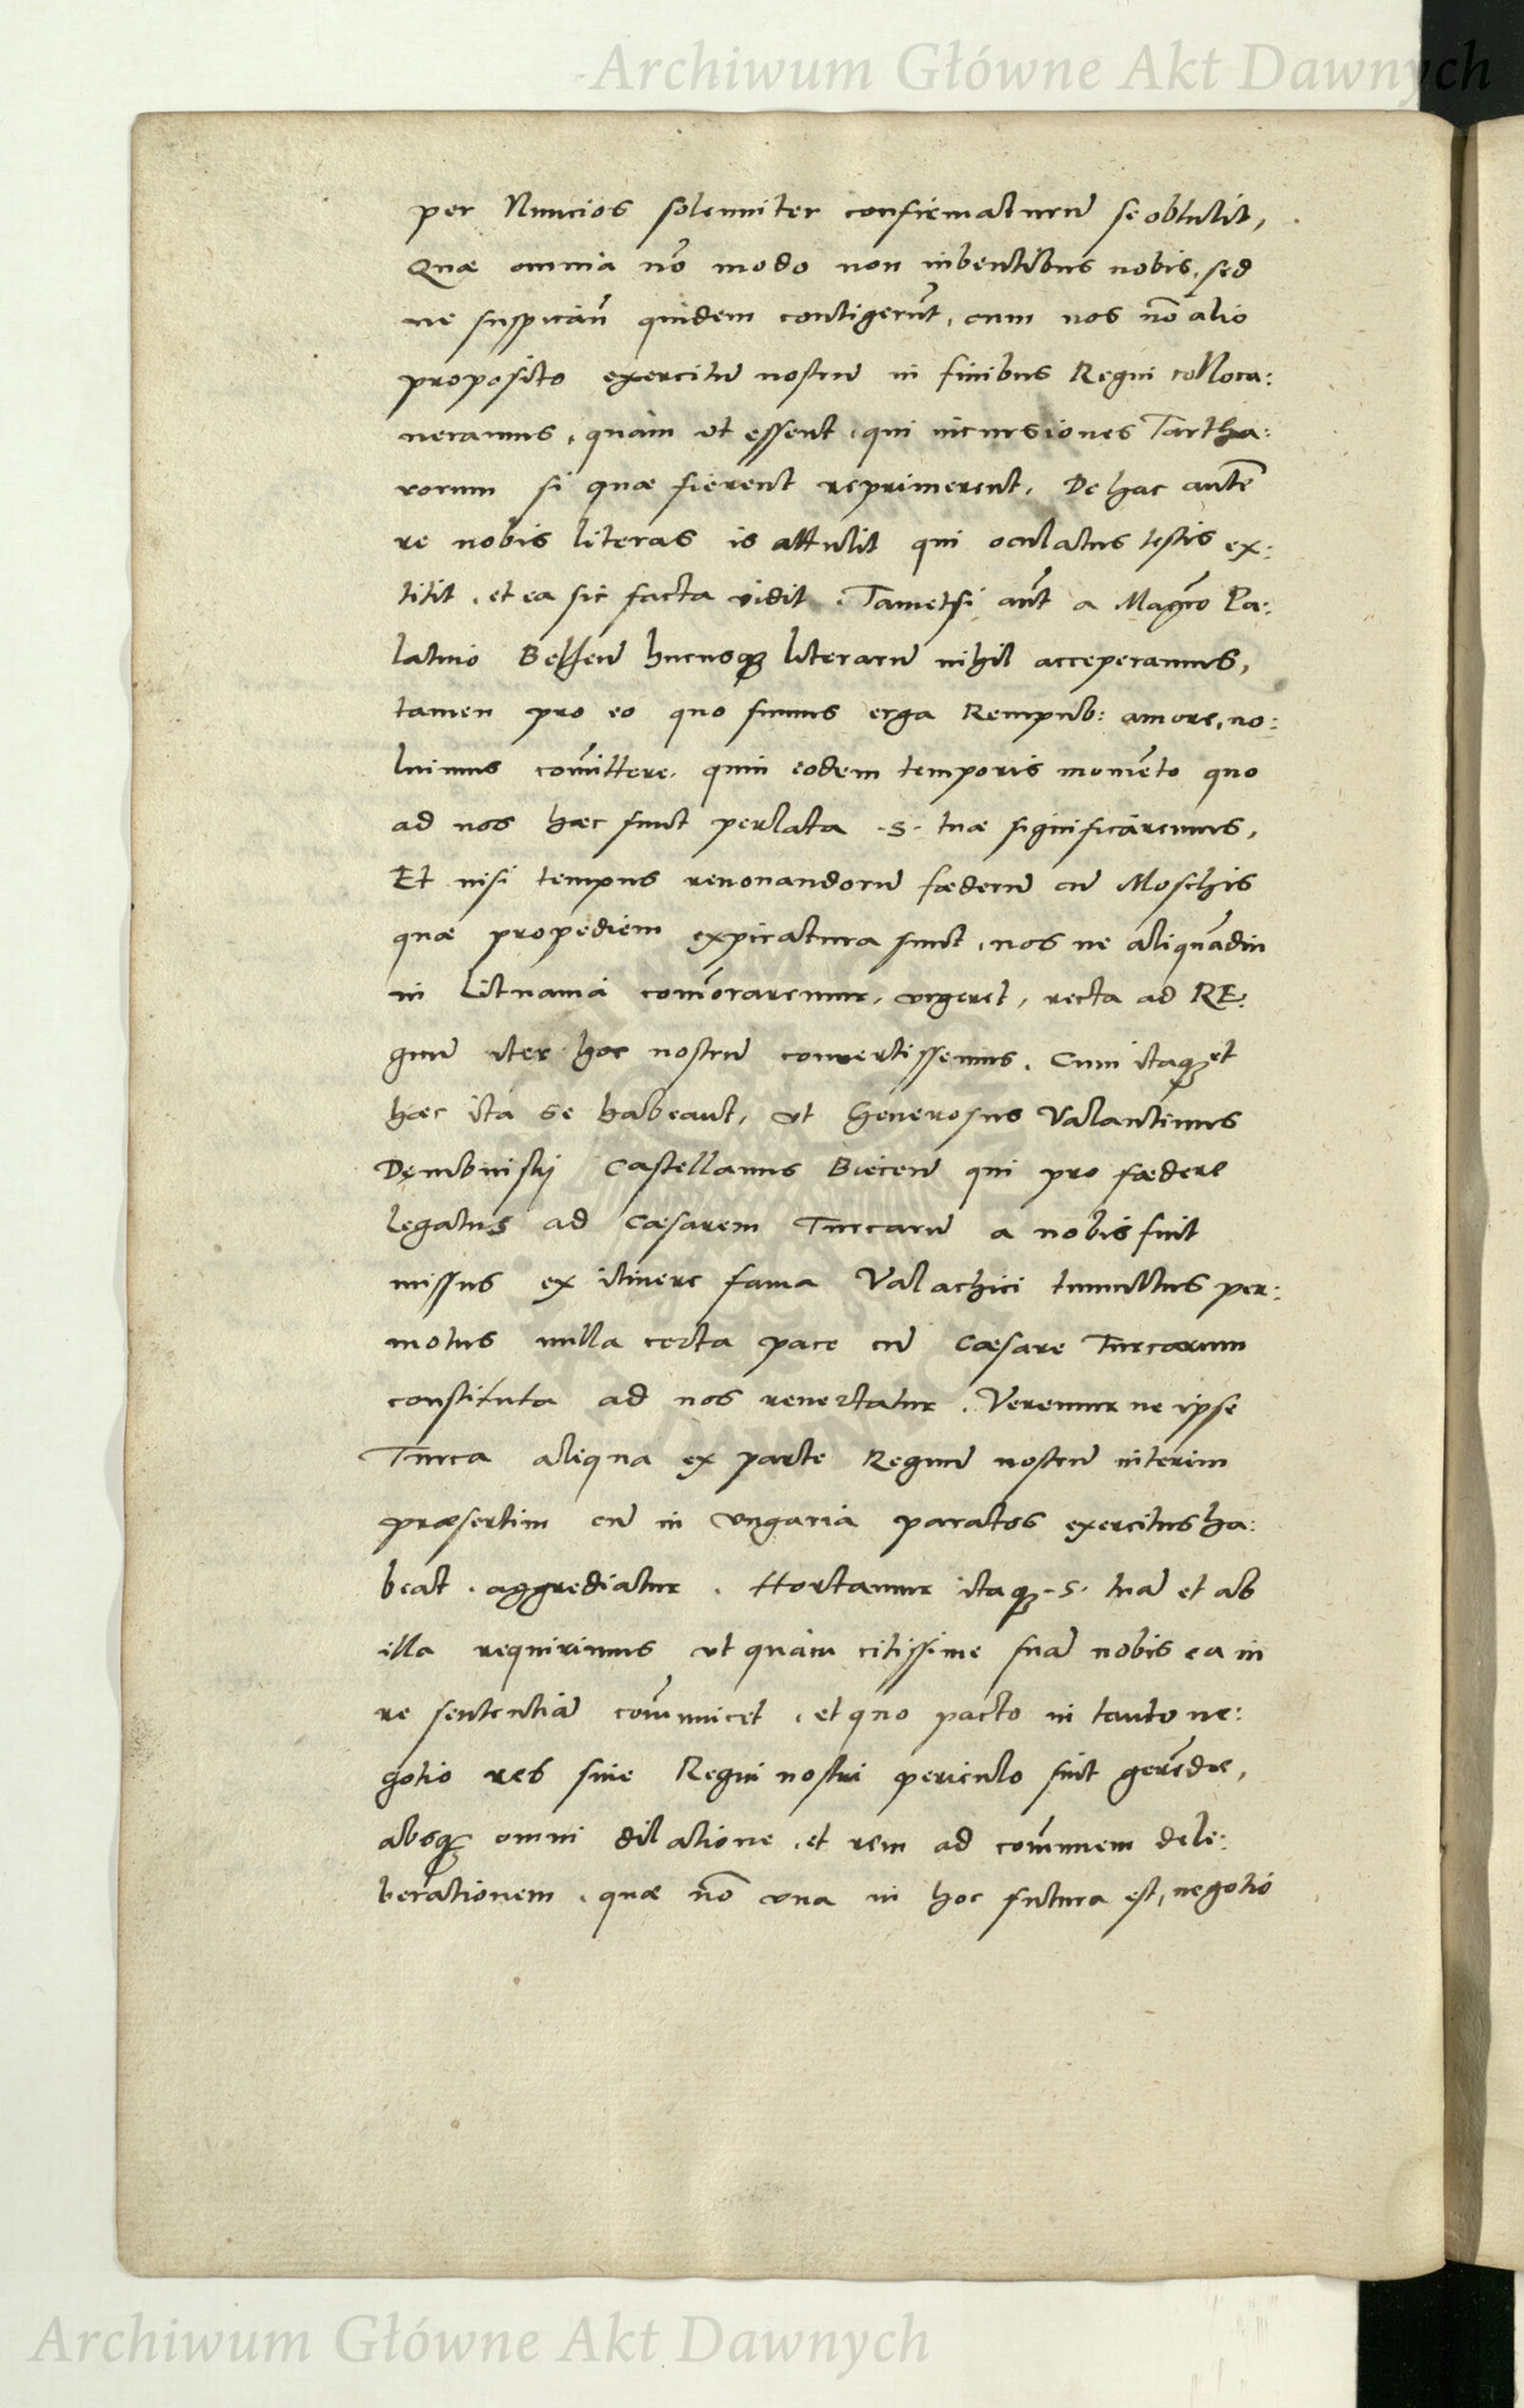 Archiwum Główne Akt Dawnych
per Nuncios solenniter confirmaturū se obtulit,
Quæ omnia nō modo non iubentibus nobis, sed
ne suspican̄ quidem contigerūt, cum nos nō alio
proposito exercitū nostrū in finibus Regni colloca:
ueramus, quàm vt essent, qui incursiones Tartha:
rorum si quæ fierent reprimerent, De hac autē
re nobis literas is attulit qui oculatus testis ex:
titit, et ea sic facta vidit. Tametsi aūt a Magco Pa:
latino Belsen̄ hucusq; literarū nihil acceperamus,
tamen pro eo quo sumus erga Rempub: amore, no:
luimus com̄ittere, quin eodem temporis momēto quo
ad nos hæc sunt perlata .S. tuæ significaremus,
Et nisi tempus renouandorū fœderū cū Moschis
quæ propediem expiratura sunt, nos ne aliquādiu
in Lituania com̄oraremur, vrgeret, recta ad RE:
gnū iter hoc nostrū conuertissemus. Cum itaq; et
hæc ita se habeant, vt Generosus Valantinus
Dęmbinskij Castellanus Biecen̄ qui pro fœdere
legatus ad Cæsarem Turcarū a nobis fuit
missus ex itinere fama Valachici tumultus per:
motus nulla certa pace cū Cæsare Turcarum
constituta ad nos reuertatur. Veremur ne ipse
Turca aliqua ex parte Regnū nostrū interim
præsertim cū in Vngaria paratos exercitus ha:
beat, aggrediatur. Hortamur itaq; .S. tuā et ab
illa requirimus vt quàm citissime suā nobis ea in
re sententiā com̄unicet, et quo pacto in tanto ne:
gotio res sine Regni nostri periculo sint gerēdæ,
absq; omni dilatione, et rem ad com̄unem dele:
berationem, quæ nō vna in hoc futura est, negotio
Archiwum Główne Akt Dawnych